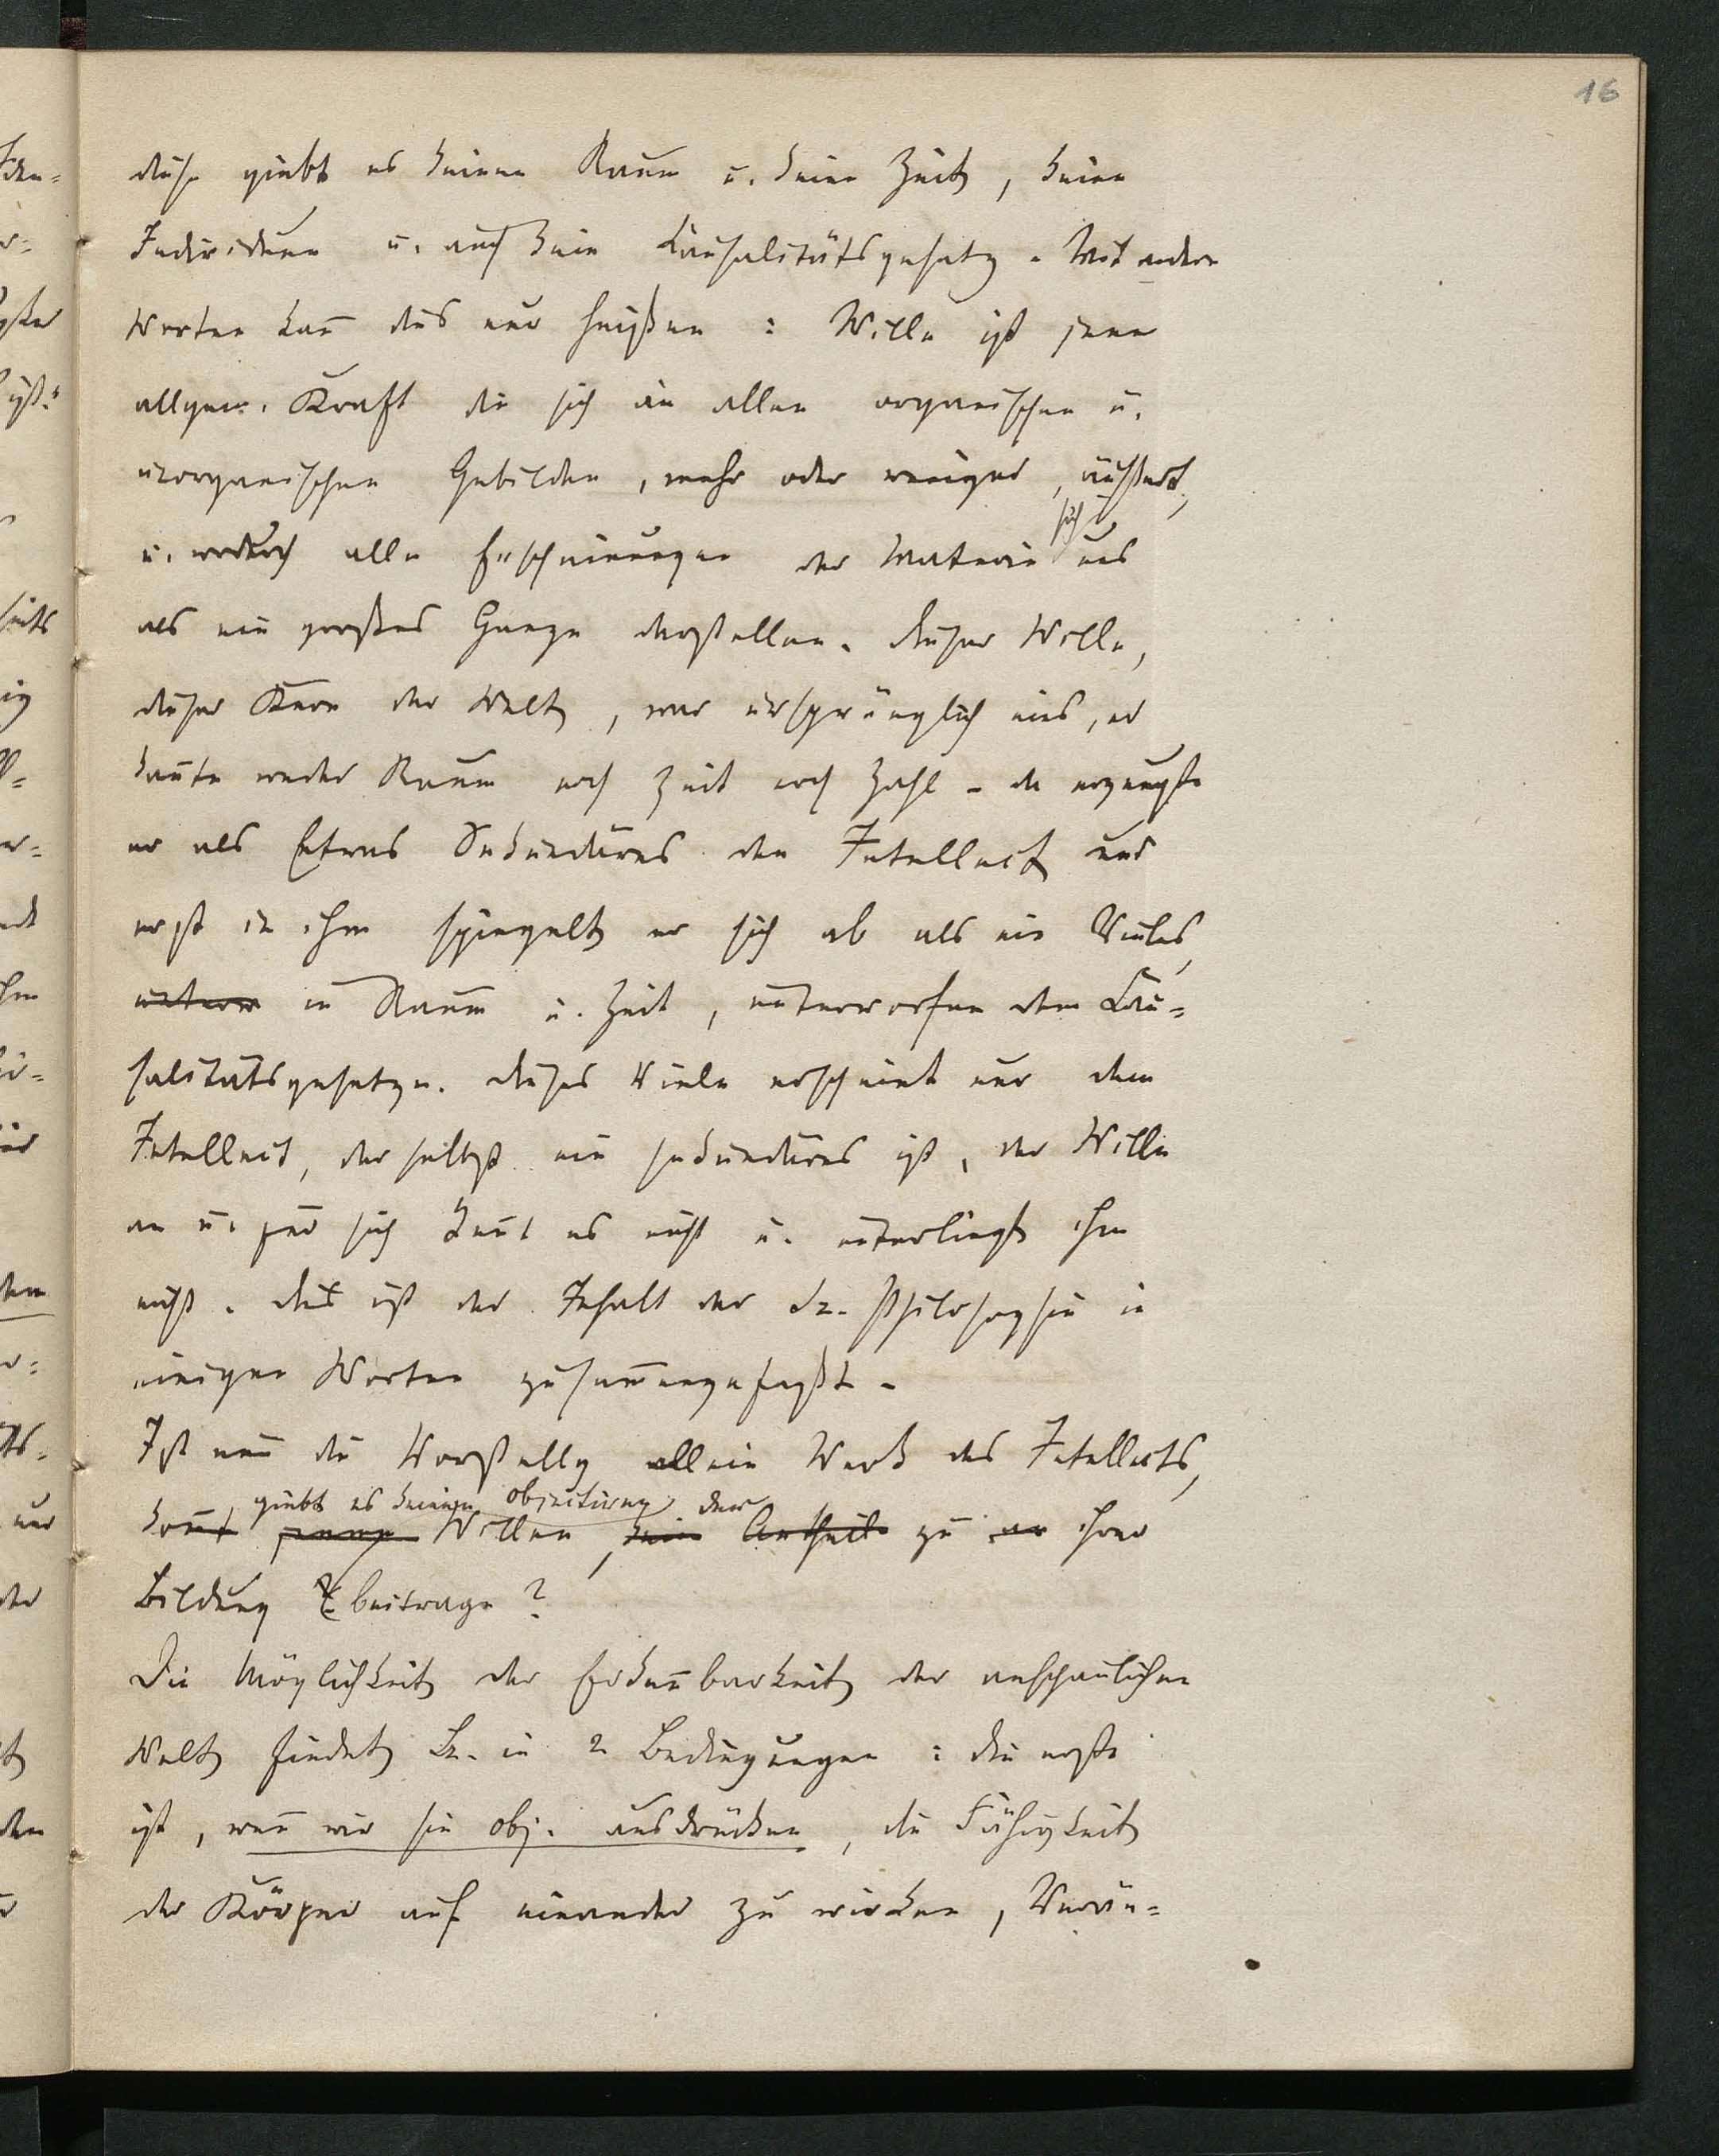 16
diese giebt es keinen Raum u. keine Zeit, keine
Individuen u. auch kein Causalitätsgesetz. Mit andern
Worten kan̄ dies nur heißen: Wille ist jene
allgem. Kraft die sich in allen organischen u.
unorganischen Gebilden, mehr oder weniger, äußert,
sich
u. wodurch alle Erscheinungen der Materie uns
als ein großes Ganze darstellen. Dieser Wille,
dieser Kern der Welt, war ursprünglich eins, er
kan̄te weder Raum noch Zeit noch Zahl – da erzeugte
er als Etwas Sekundäres den Intellect und
erst in ihm spiegelt er sich ab als ein Vieles,
unterw in Raum u. Zeit, unterworfen dem Cau=
salitätsgesetze. Dieses Viele erscheint nur dem
Intellect, der selbst ein sekundäres ist, der Wille
an u. für sich ken̄t es nicht u. unterliegt ihm
nicht. Dies ist der Inhalt der Philosophie in
einigen Worten zusam̄engefaßt –
Ist nun die Vorstellg allein Werk des Intellects,
giebt es keinen objectiven der
kom̄t Willen, kein Antheil zu an ihrer
Bildung beitrage?
Die Möglichkeit der Erken̄barkeit der anschaulichen
Welt findet in 2 Bedingungen: die erste
ist, wen̄ wir sie obj. ausdrücken, die Fähigkeit
der Körper auf einander zu wirken, Verän=